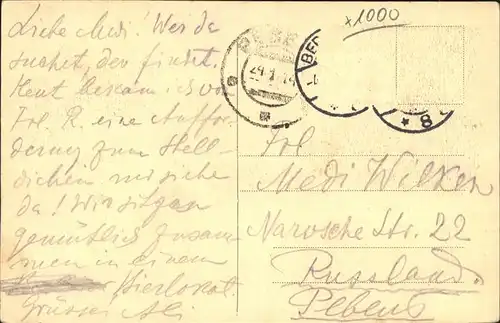 Liebe Medi! Wer da
suchet, der findet.
Heut bekam ich von
Frl. R. eine Auffor-
derung zum Stell-
dichein und siehe
da! Wir sitzen
gemütlich zusam-
men in einem
Bierlokal.
Grüsse Ali
x1000
29.1.14
BER
8 *
Frl
Medi Wilken
Narosche Str. 22
Russland.